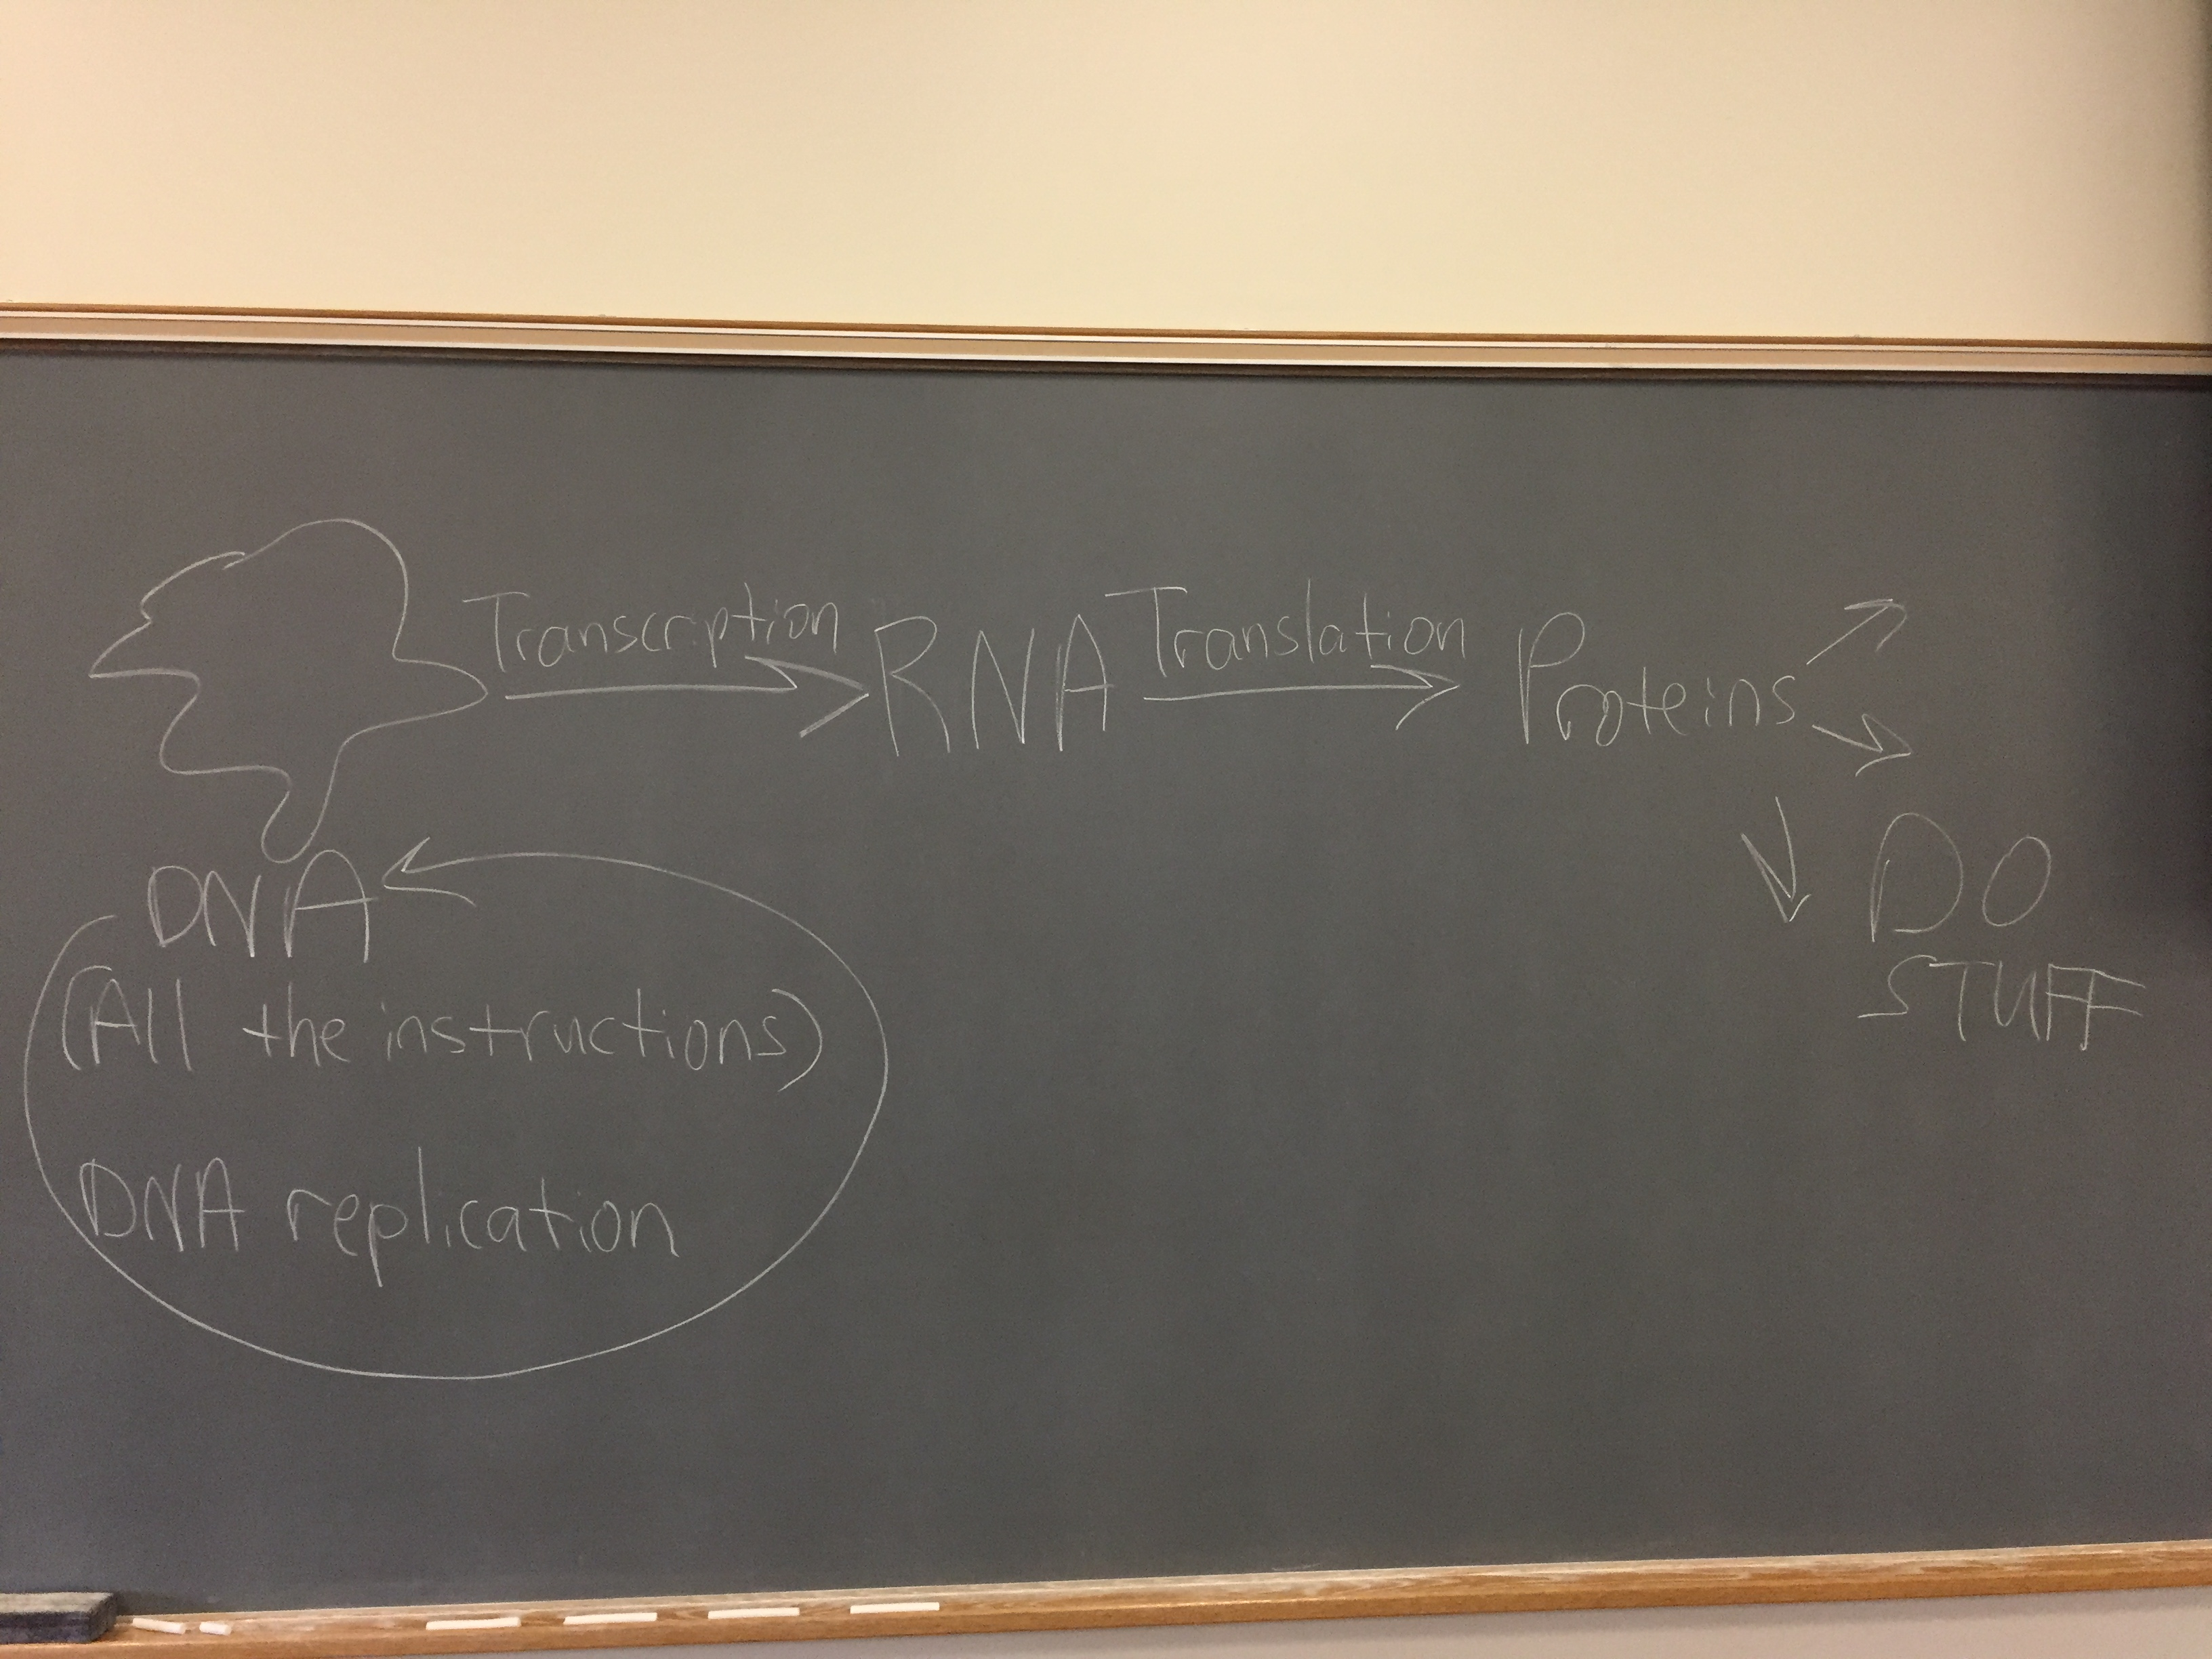 Transcription
RNA
Translation
Proteins
DO
STUFF
DNA
(All the instructions)
DNA replication